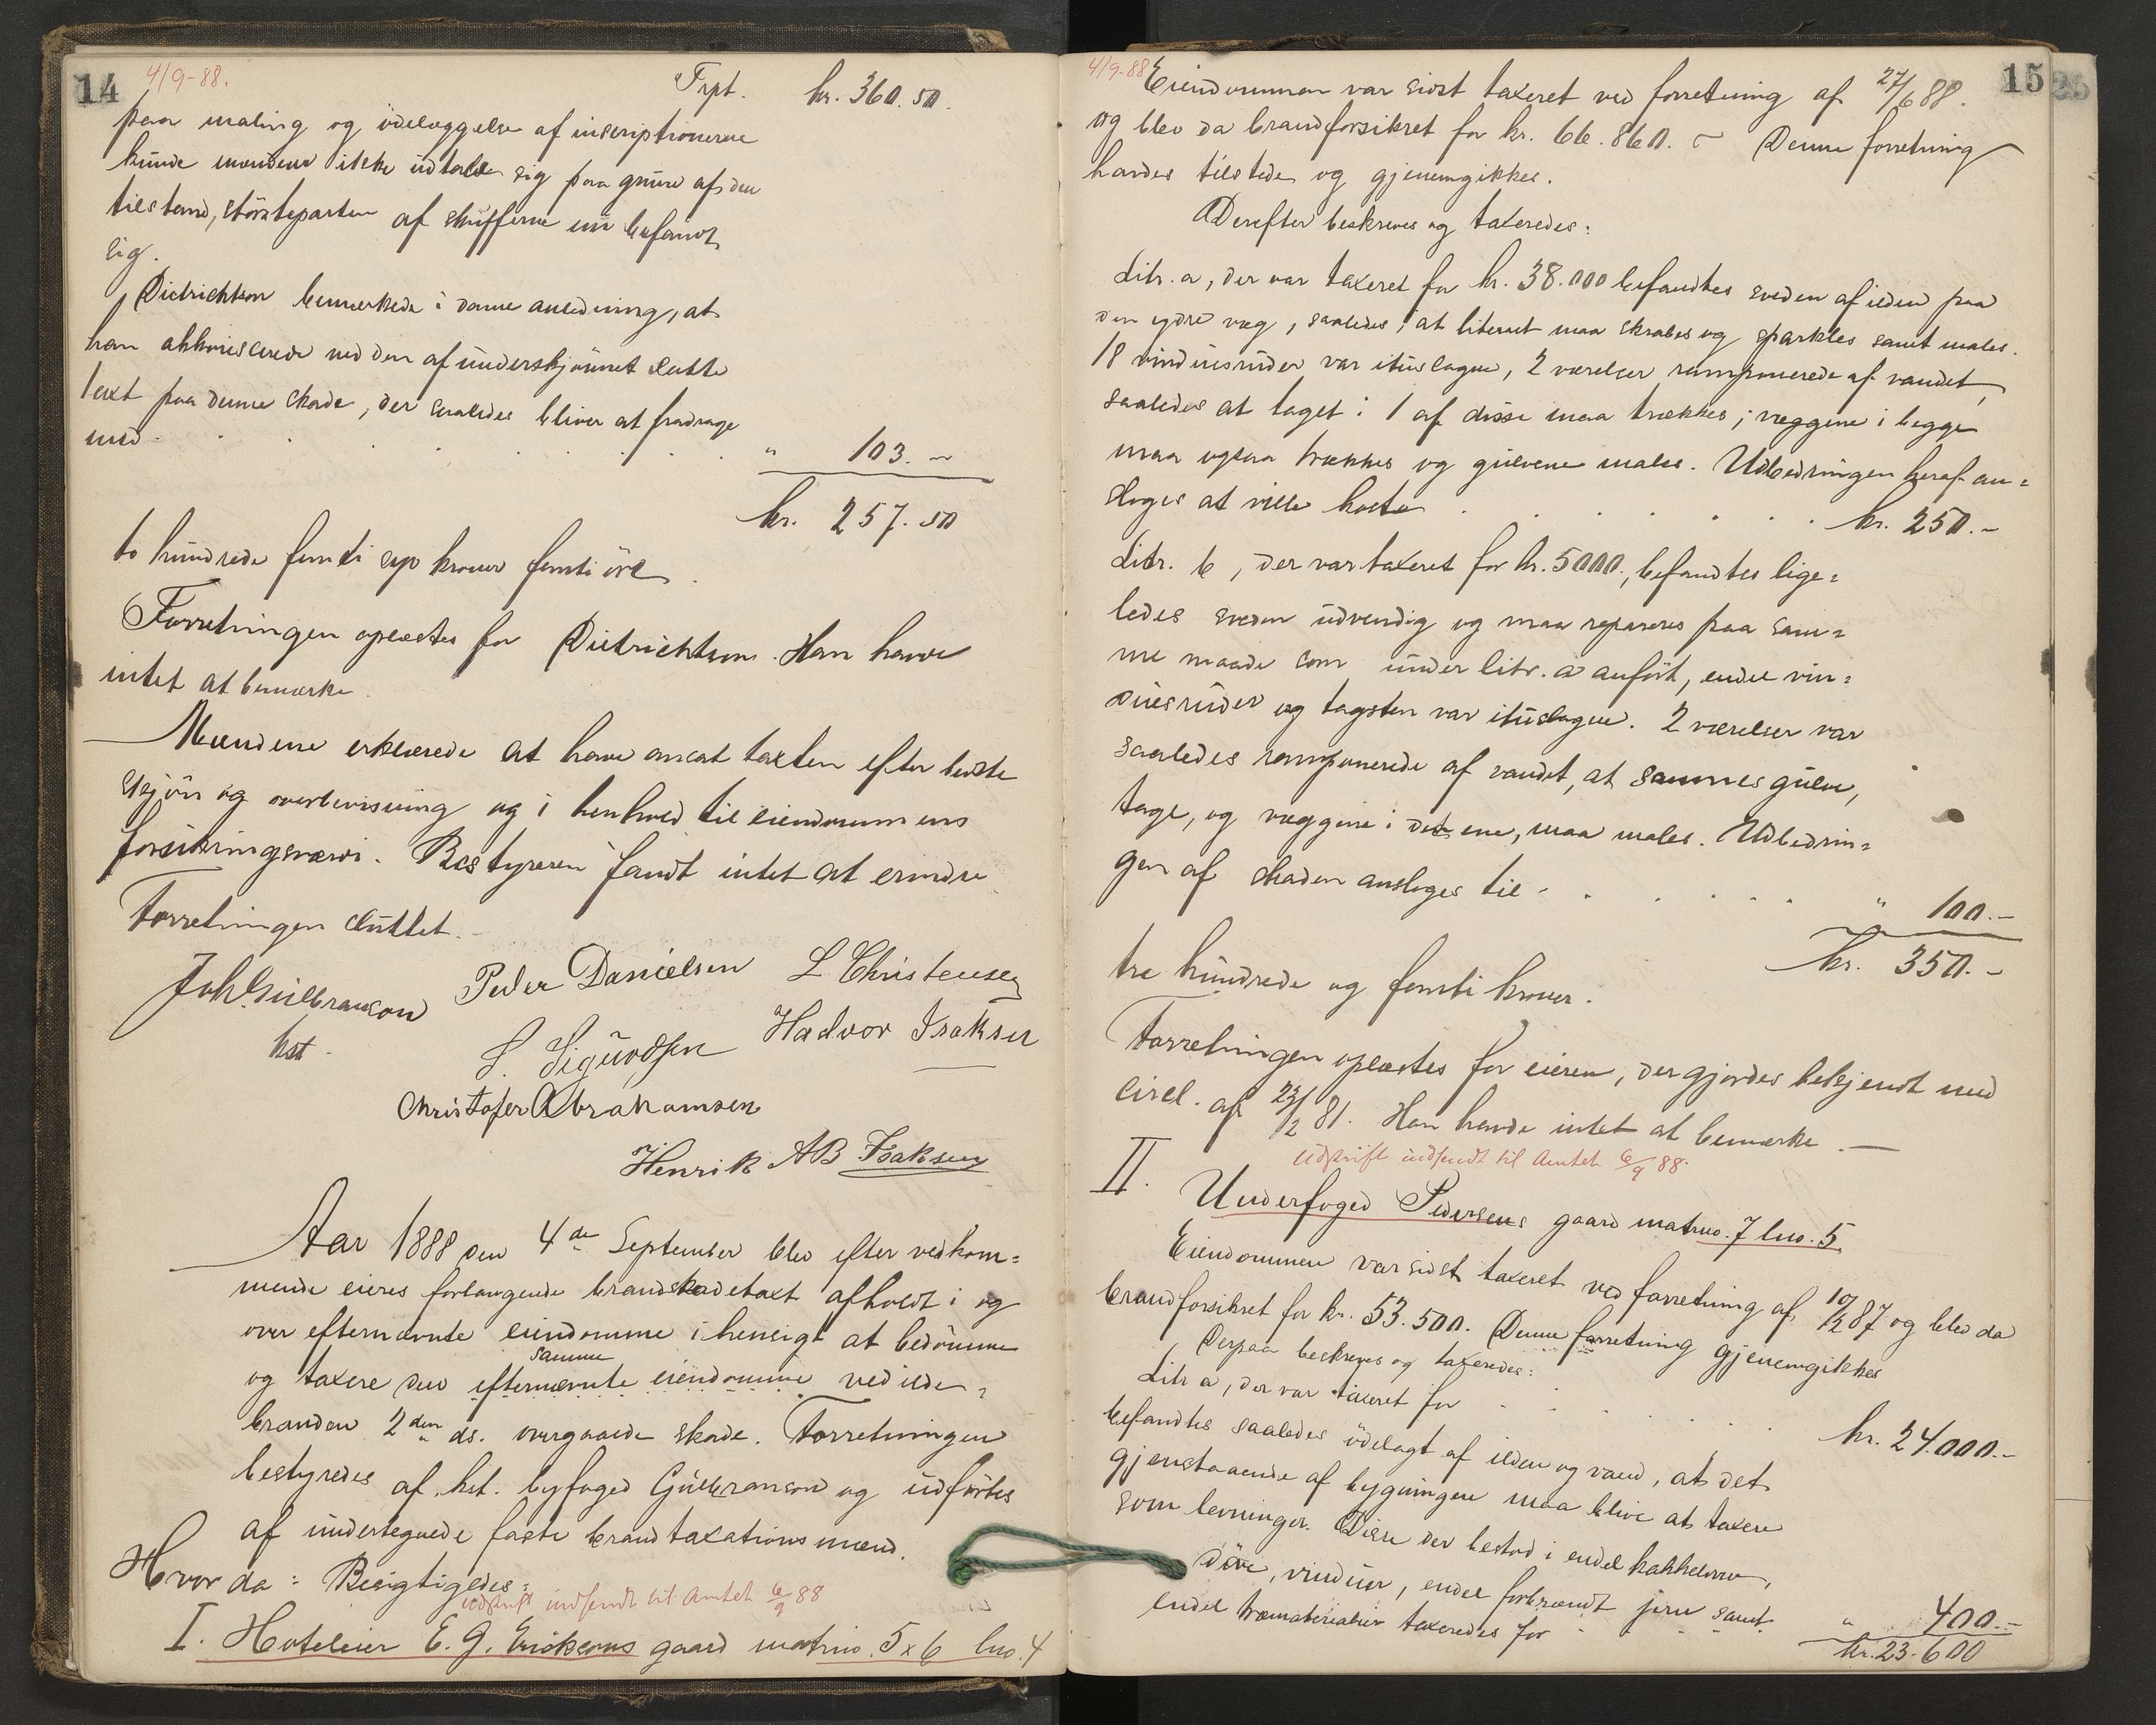 14
4/9-88.
Trpt. kr. 360.50.
paa maling og ödelæggelse af inscriptionerne
kunde mændene ikke udtale sig paa grund af den
tilstand, störsteparten af skufferne nu befandt
sig.
Dietrichson bemærkede i denne anledning, at
han akkviescerede ved den af underskjönnet satte
taxt paa denne skade, der saaledes bliver at fradrage
med . . . . . . . " 103. –
kr. 257.50
to hundrede femti syv kroner femti öre.
Forretningen oplæstes for Dietrichson. Han havde
intet at bemærke.
Mændene erklærede at have ansat taxten efter bedste
skjön og overbevisning og i henhold til eiendommens
forsikringsværdi. Bestyreren fandt intet at erindre.
Forretningen sluttet.
Joh. Gulbranson
kst.
Peder Danielsen L Christensen
S. Sigurdsen Hadvor Isaksen
Christofer Abrahamsen
Henrik AB Isaksen
Aar 1888 den 4de September blev efter vedkom=
mende eieres forlangende brandskadetaxt afholdt i og
over efternævnte eiendomme i hensigt at bedömme
samme
og taxere den efternævnte eiendomme ved ilde=
branden 2den ds. overgaaede skade. Forretningen
bestyredes af kst. byfoged Gulbranson og udförtes
af undertegnede faste brandtaxationsmænd.
Hvor da: Besigtigedes:
udskrift indsendt til Amtet 6/9 88
I. Hoteleier E. G. Ericksons gaard matrno. 5 x 6 lno. 4
15
4/9-88
Eiendommen var sidst taxeret ved forretning af 27/6 88.
og blev da brandforsikret for kr. 66.860. – Denne forretning
havdes tilstede og gjenemgikkes.
Derefter beskreves og taxeredes:
Litr. a, der var taxeret for kr. 38.000 befandtes sveden af ilden paa
den ydre væg, saaledes, at literret maa skrabes og sparkles samt males.
18 vinduesruder var ituslagne, 2 værelser ramponerede af vandet,
saaledes at taget i 1 af disse maa trækkes; væggene i begge
maa ogsaa trækkes og gulvene males. Udbedringen heraf an=
sloges at ville koste . . . . . . kr. 250.–
Litr. b, der var taxeret for kr. 5000, befandtes lige=
ledes sveden udvendig og maa repareres paa sam=
me maade som under litr. a anfört, endel vin=
duesruder og tagsten var ituslagne. 2 værelser var
saaledes ramponerede af vandet, at sammes gulve,
tage, og væggene i det ene, maa males. Udbedrin=
gen af skaden ansloges til . . . . . " 100.–
kr. 350.–
tre hundrede og femti kroner.
Forretningen oplæstes for eieren, der gjordes bekjendt med
circl. af 23/12 81. Han havde intet at bemærke. –
udskrift indsendt til Amtet 6/9 88.
II. Underfoged Pedersens gaard matrno. 7 lno. 5.
Eiendommen var sidst taxeret ved forretning af 10/12 87 og blev da
brandforsikret for kr. 53.500. Denne forretning gjenemgikkes
Derpaa beskreves og taxeredes:
Litr a, der var taxeret for . . . . . . . kr. 24.000.–
befandtes saaledes ödelagt af ilden og vand, at det
gjenstaaende af bygningen maa blive at taxere
som levninger. Disse der bestod i endel kakkelovne,
döre, vinduer, endel forbrændt jern samt
endel træmaterialier taxeredes for . . . " 400.–
kr. 23.600